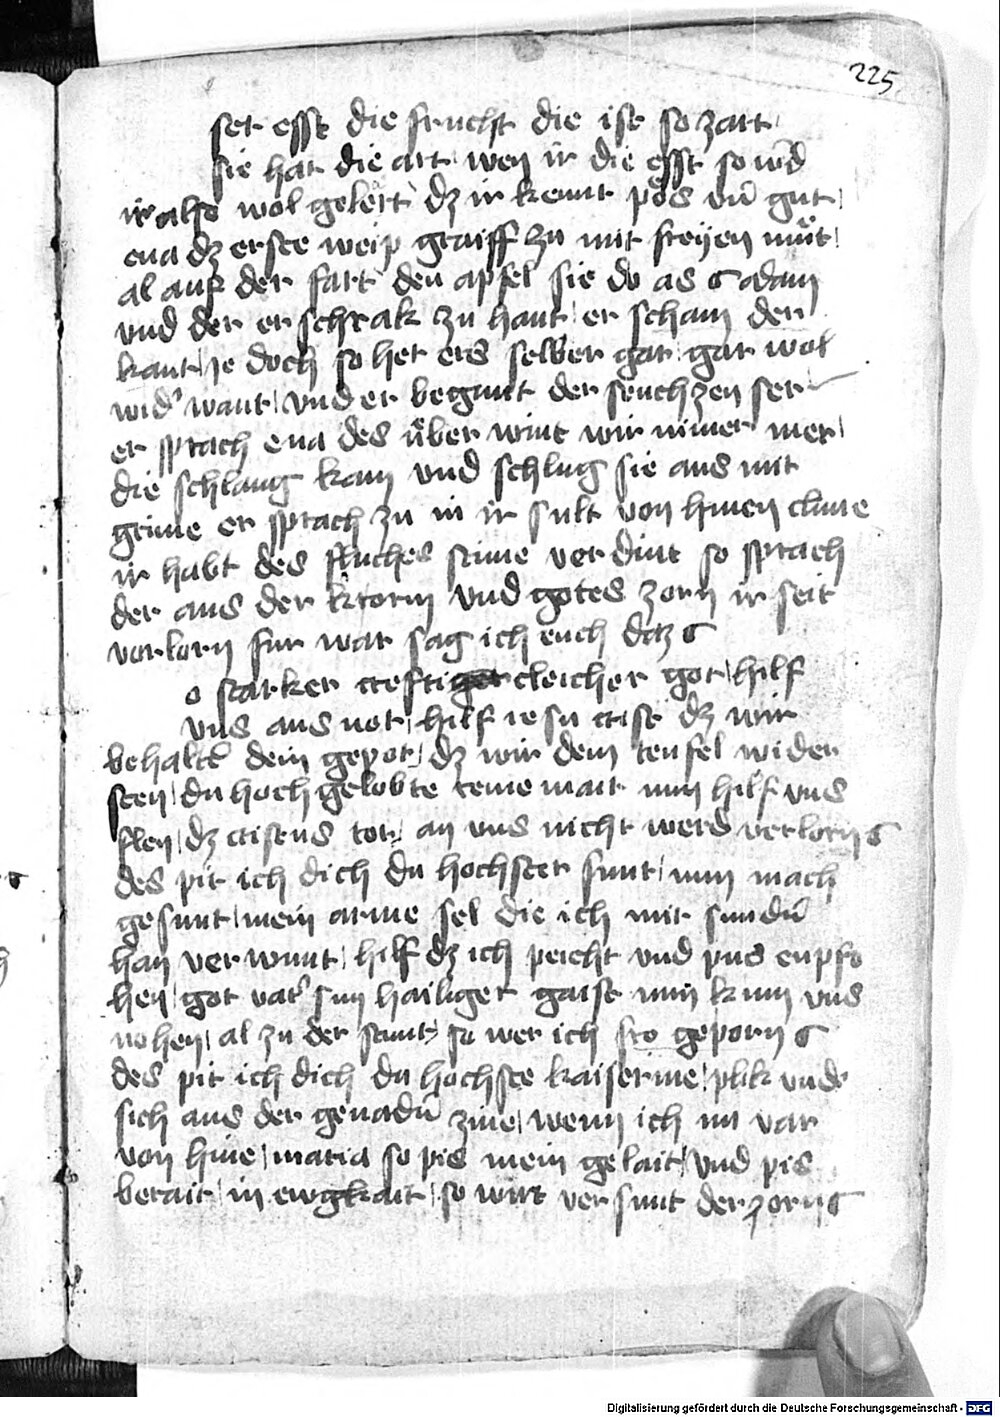 225
set esst die frucht die ist so zart
sie hat die art wen ir die esst so wd̄
ir also wol gelert dz ir kennt pös vn̄ gut
eua dz erste weip graiff zu mit freyen müt
al auf der fart den apfel sie do as adam
vnd der er schrak zu hant er scham der
kant ie doch so het ers selber gar gar wol
wid' want vnd er begunt der seuchzen ser
er sprach eua des über wint wir nimer mer
die schlang kam vnd schlug sie aus mit
grime er sprach zu in ir sult von hinen
ir habt des fluches stime ver dint so sprach
der aus der vnd gotes zorn ir seit
verlorn fur war sag ich euch datz
o starker creftigcleicher got hilf
vns aus not hilf iesu crist dz wir
behaltē dein gepot dz wir dem teufel wider
sten du hoch gelobte reine mait nun hilf vns
flen dz cristens tot an vns nicht werd verlorn
des pit ich dich du hochster funt nun mach
gesunt mein arme sel die ich mit sundē
han ver wunt hilf dz ich peicht vnd pus enpfo
hen got vat' sun hailiger gaist nun kum vns
nohen al zu der stunt so wer ich fro geporn
des pit ich dich du hochste kaiserine plik vnde
sich aus der genadē zine wenn ich nu var
von hine maria so pis mein gelait vnd pis
berait in ewgkait so wirt versunt der zorn
Digitalisierung gefördert durch die Deutsche Forschungsgemeinschaft - DFG